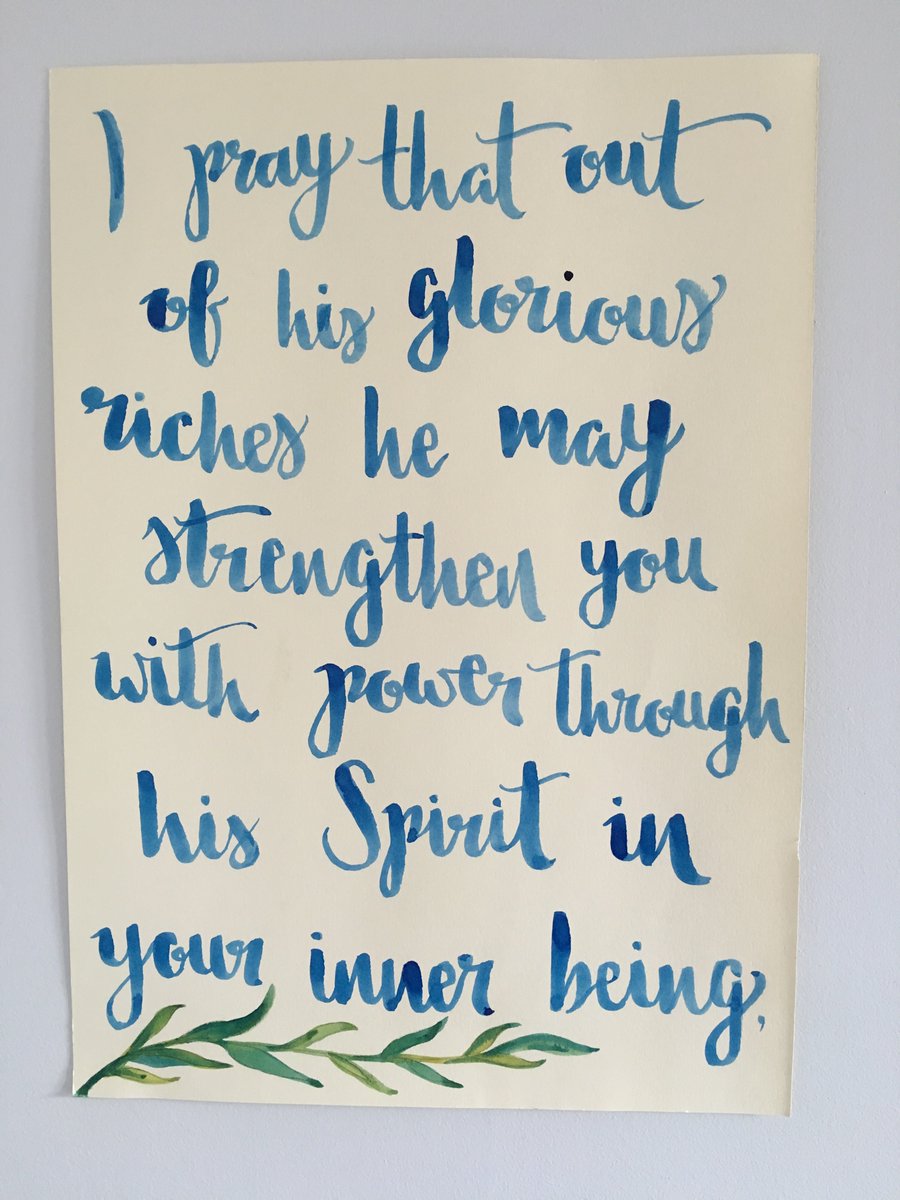 I pray that out
of his glorious
riches he may
strengthen you
with power through
his Spirit in
your inner being,